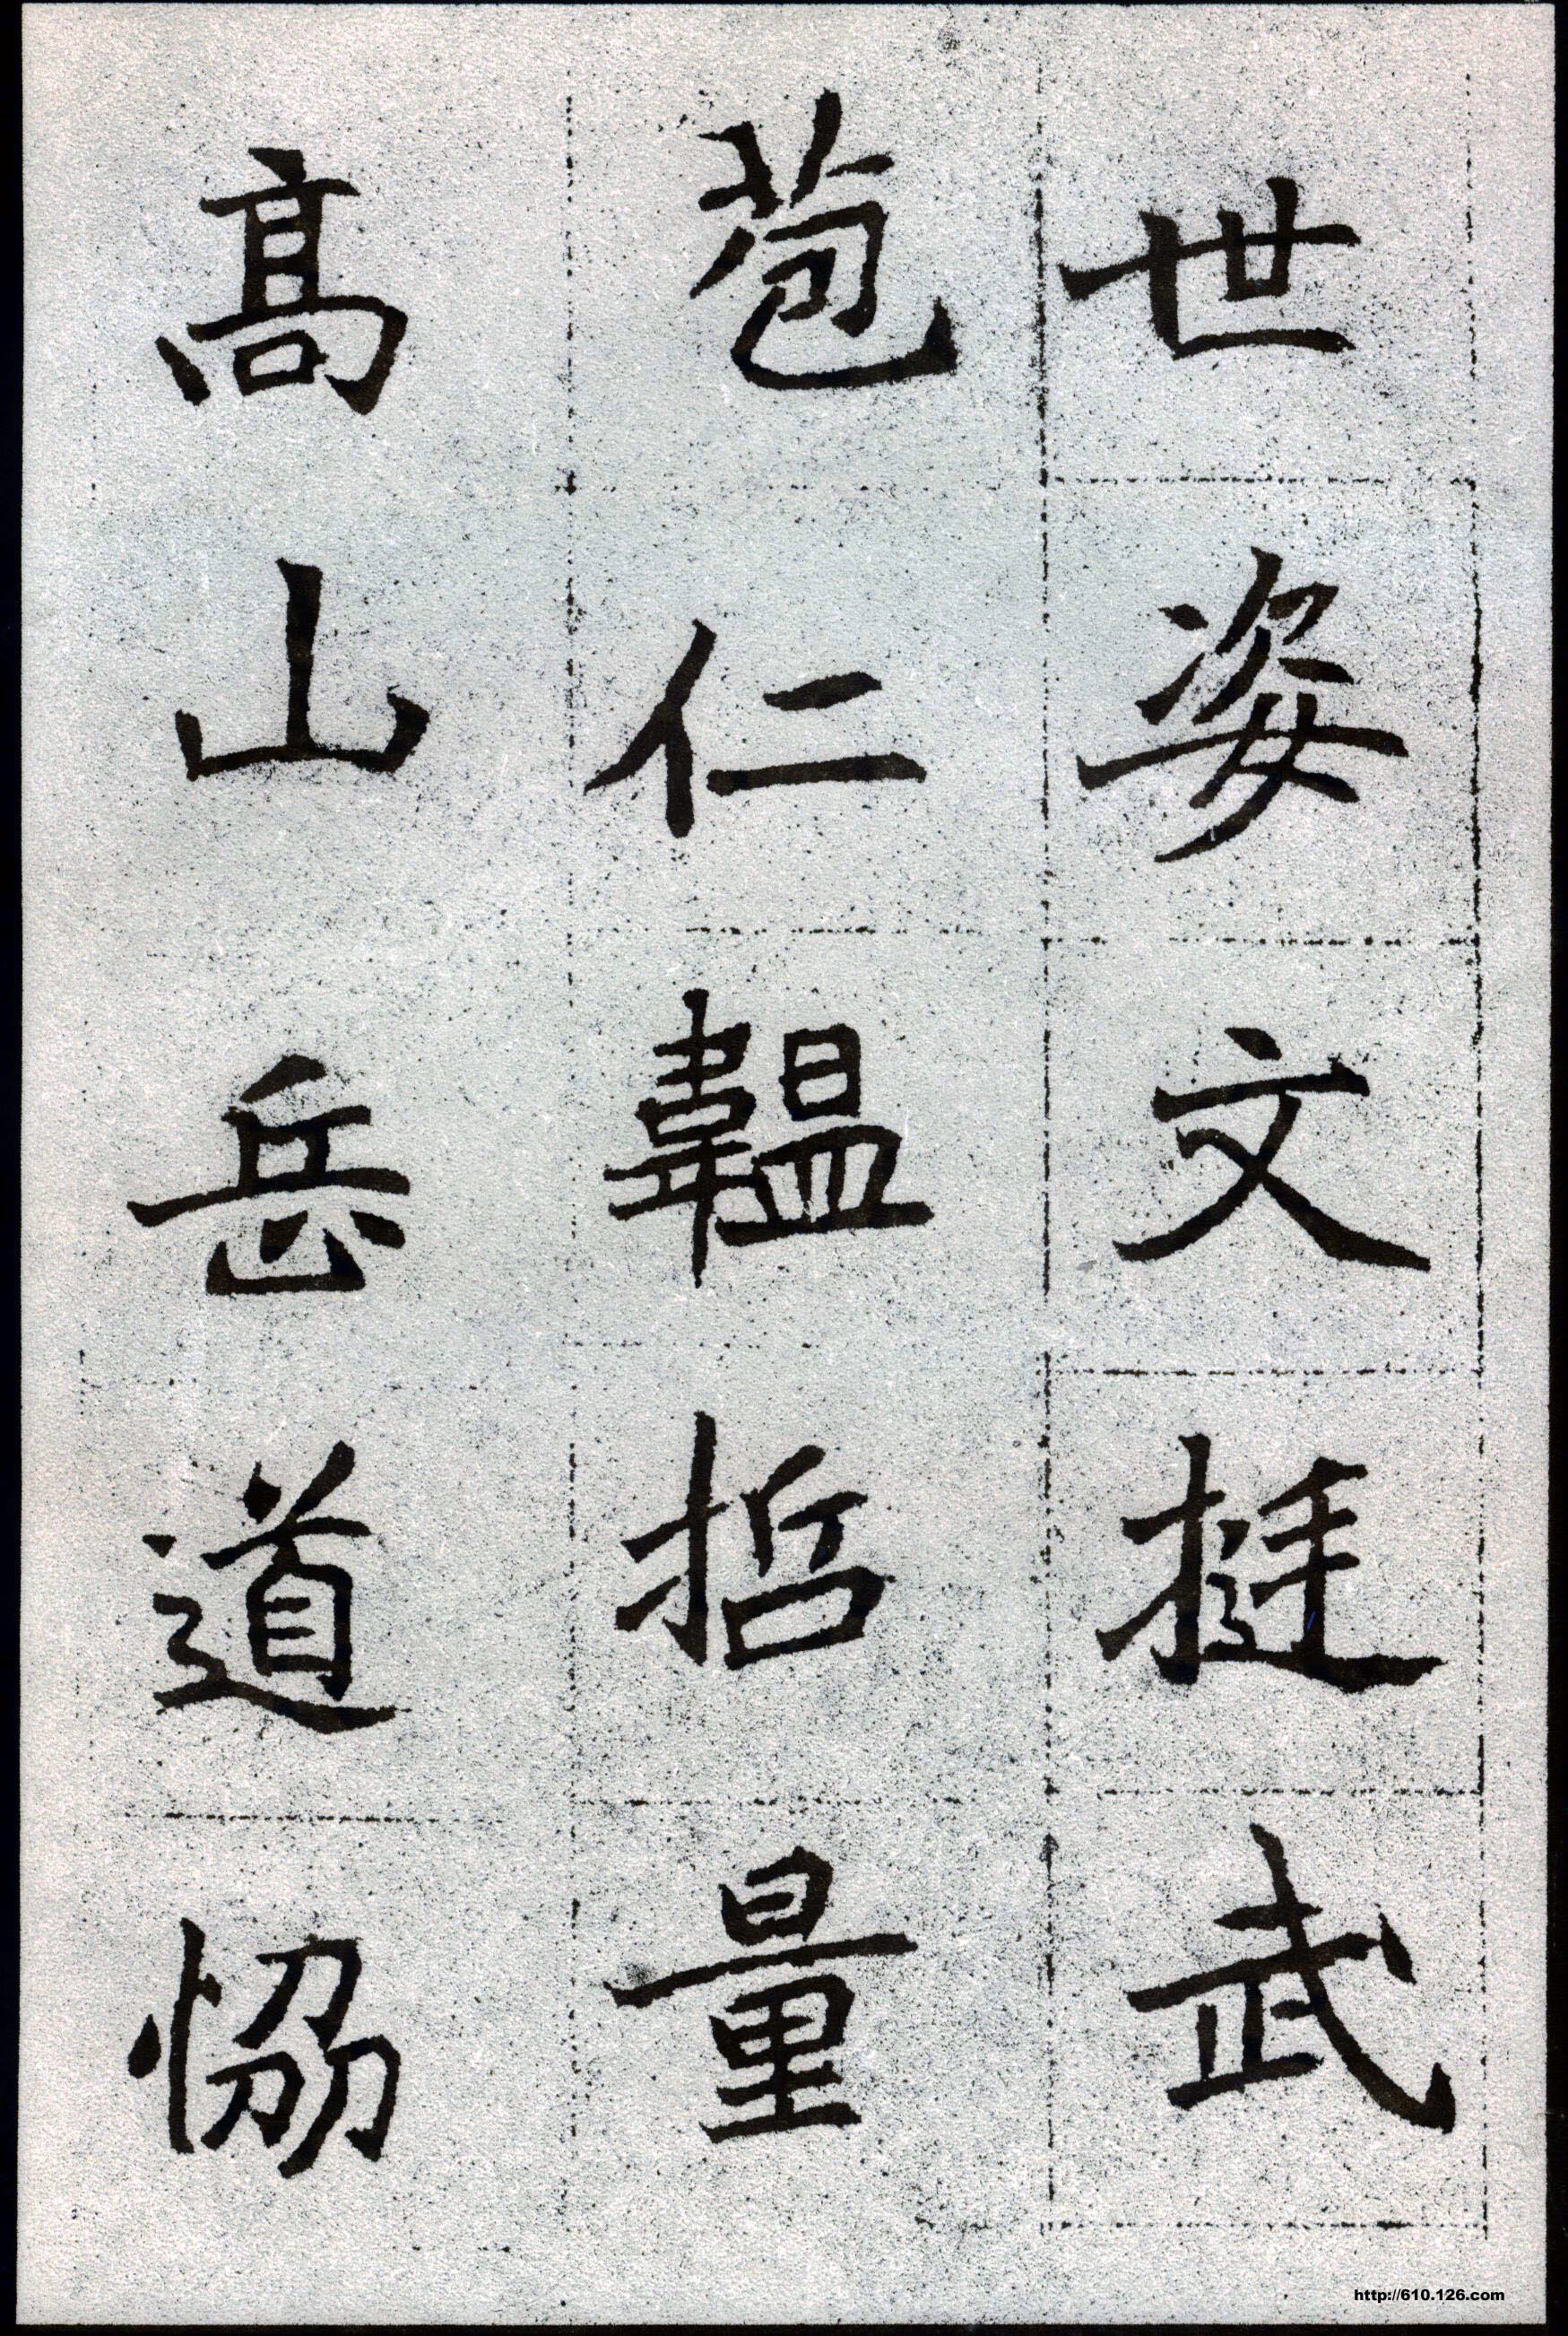 世姿文挺武
苞仁韞哲量
髙山岳道恊
http://610.126.com